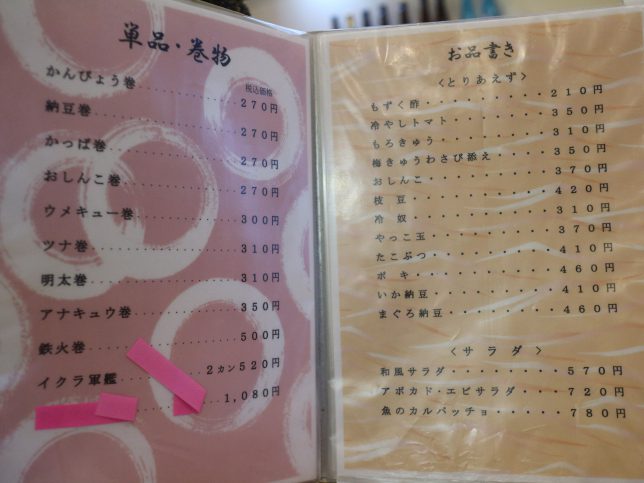 単品・巻物
税込価格
かんぴょう巻 270円
納豆巻 270円
かっぱ巻 270円
おしんこ巻 270円
ウメキュー巻 300円
ツナ巻 310円
明太巻 310円
アナキュウ巻 350円
鉄火巻 500円
イクラ軍艦 2カン520円
1,080円
お品書き
<とりあえず>
もずく酢・・・・・・・・・210円
冷やしトマト・・・・・・・・350円
もろきゅう・・・・・・・・・310円
梅きゅうわさび添え・・・・・・350円
おしんこ・・・・・・・・・・370円
枝豆・・・・・・・・・・・420円
冷奴・・・・・・・・・・・310円
やっこ玉・・・・・・・・・・370円
たこぶつ・・・・・・・・・・410円
ポキ・・・・・・・・・・・460円
いか納豆・・・・・・・・・・410円
まぐろ納豆・・・・・・・・・460円
<サラダ>
和風サラダ・・・・・・・・・570円
アボカド・エビサラダ・・・・・720円
魚のカルパッチョ・・・・・・780円